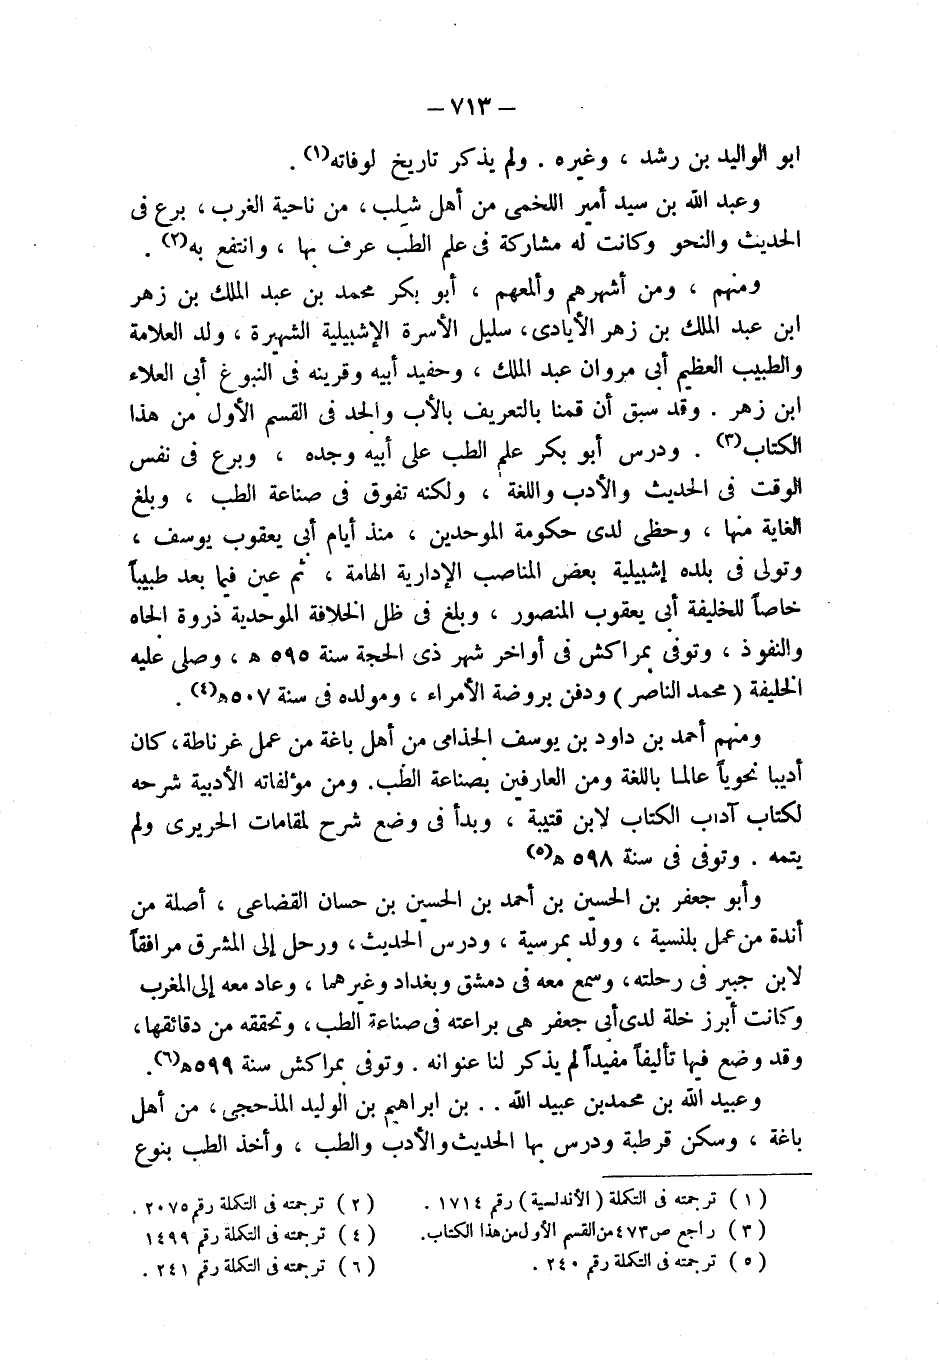 — ٧١٣ —
ابو الواليد بن رشد ، وغيره . ولم يذكر تاريخ لوفاته(١) .
وعبد الله بن سيد أمير اللخمى من أهل شلب ، من ناحية الغرب ، برع فى
الحديث والنحو وكانت له مشاركة فى علم الطب عرف بها ، وانتفع به(٢) .
ومنهم ، ومن أشهرهم وألمعهم ، أبو بكر محمد بن عبد الملك بن زهر
ابن عبد الملك بن زهر الأيادى ، سليل الأسرة الإشبيلية الشهيرة ، ولد العلامة
والطبيب العظيم أبى مروان عبد الملك ، وحفيد أبيه وقرينه فى النبوغ أبى العلاء
ابن زهر . وقد سبق أن قمنا بالتعريف بالأب والجد فى القسم الأول من هذا
الكتاب(٣) . ودرس أبو بكر علم الطب على أبيه وجده ، وبرع فى نفس
الوقت فى الحديث والأدب واللغة ، ولكنه تفوق فى صناعة الطب ، وبلغ
الغاية منها ، وحظى لدى حكومة الموحدين ، منذ أيام أبى يعقوب يوسف ،
وتولى فى بلده إشبيلية بعض المناصب الإدارية الهامة ، ثم عين فيما بعد طبيباً
خاصاً للخليفة أبى يعقوب المنصور ، وبلغ فى ظل الخلافة الموحدية ذروة الجاه
والنفوذ ، وتوفى بمراكش فى أواخر شهر ذى الحجة سنة ٥٩٥ ه ، وصلى عليه
الخليفة ( محمد الناصر ) ودفن بروضة الأمراء ، ومولده فى سنة ٥٠٧ه(٤) .
ومنهم أحمد بن داود بن يوسف الجذامى من أهل باغة من عمل غرناطة ، كان
أديبا نحوياً عالما باللغة ومن العارفين بصناعة الطب. ومن مؤلفاته الأدبية شرحه
لكتاب آداب الكتاب لابن قتيبة ، وبدأ فى وضع شرح لمقامات الحريرى ولم
يتمه . وتوفى فى سنة ٥٩٨ ه(٥)
وأبو جعفر بن الحسين بن أحمد بن الحسين بن حسان القضاعى ، أصلة من
أندة من عمل بلنسية ، وولد بمرسية ، ودرس الحديث ، ورحل إلى المشرق مرافقاً
لابن جبير فى رحلته ، وسمع معه فى دمشق وبغداد وغيرهما ، وعاد معه إلى المغرب
وكانت أبرز خلة لدى أبى جعفر هى براعته فى صناعة الطب ، وتحققه من دقائقها ،
وقد وضع فيها تأليفاً مفيداً لم يذكر لنا عنوانه . وتوفى بمراكش سنة ٥٩٩ه(٦).
وعبيد الله بن محمد بن عبيد الله . . بن ابراهيم بن الوليد المذحجى ، من أهل
باغة ، وسكن قرطبة ودرس بها الحديث والأدب والطب ، وأخذ الطب بنوع
( ١ ) ترجمته فى التكلة ( الأندلسية ) رقم ١٧١٤ . ( ٢ ) ترجمته فى التكلة رقم ٢٠٧٥ .
( ٣ ) راجع ص ٤٧٣ من القسم الأول من هذا الكتاب. ( ٤ ) ترجمته فى التكلة رقم ١٤٩٩
( ٥ ) ترجمته فى التكلة رقم ٢٤٠ . ( ٦ ) ترجمته فى التكلة رقم ٢٤١ .